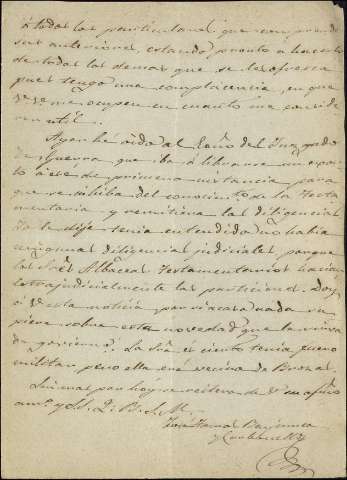 á todos los particulares que comprende
sus anteriores, estando pronto á hacerlo
de todas las demas que se le ofrezca
pues tengo una complacencia, en que
V. se me ocupe en cuanto me considere
util.
Ayer hé oido al Esño del Juzgado
de guerra que iba á librarse un exorto
á ese de primera instancia para
que se inhiba del conocimto de la Testa
mentaria y remitiera las diligencias
yo le dije tenia entendido no habia
ningunas diligencias judiciales, porque
los Sres Albaceas Testamentarios hacian
extrajudicialmente las particiones. Doy
á V. esta noticia por si acaso nada su
piese sobre esta novedad que la
de govierno. La Sra es cierto tenia fuero
militar, pero ella era vecina de
Sin mas por hoy se reitera de V. su afmo
amo. y S. S. Q. B. S. M.
José Ramos
y